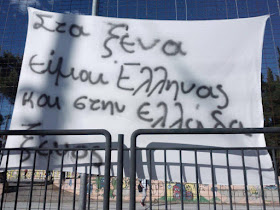 Στα ξένα
είμαι Έλληνας
και στην Ελλάδα
ξένος